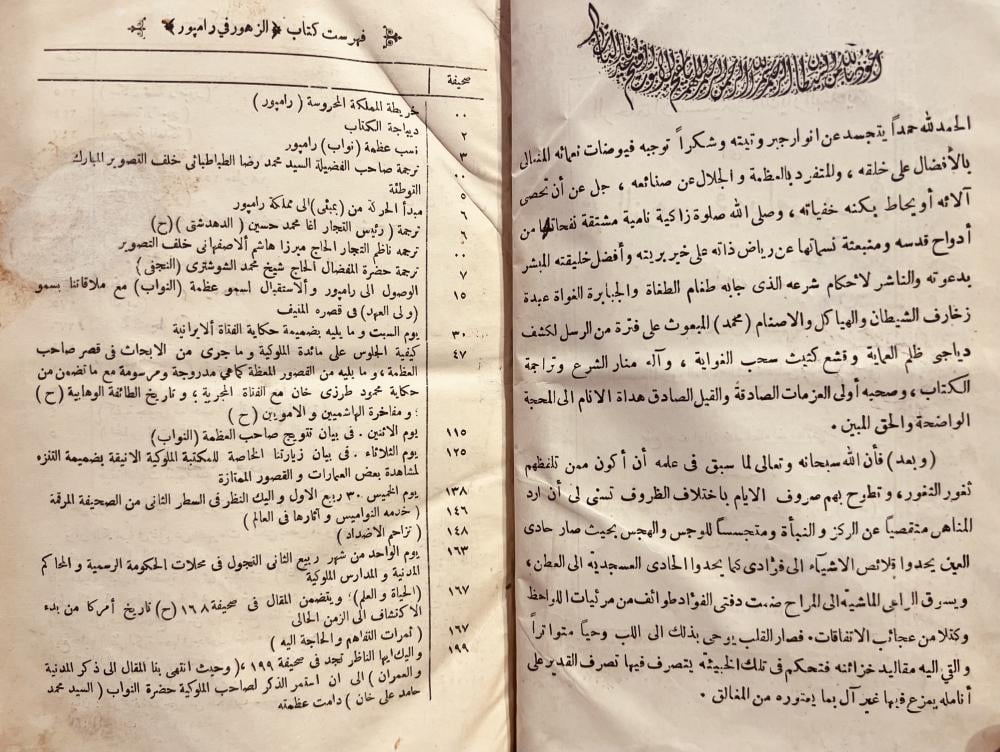 أعوذ بالله من الشيطان الرجيم بسم الله الرحمن الرحيم
الحمد لله حمداً يتجسد عن انوار جبروتيته وشكراً توجبه فيوضات نعمائه المتعالى
بالأفضال على خلقه ، والمتفرد بالعظمة والجلال عن صنائعه ، جل عن أن تحصى
آلائه أو يحاط بكنه خفياته ، وصلى الله صلوة زاكية نامية مشتقة نفحاتها من
أدواح قدسه ومنبعثة نسماتها عن رياض ذاته على خير بريته وأفضل خليقته المبشر
بدعوته والناشر لأحكام شرعه الذى جابه طغام الطغاة والجبابرة الغواة عبدة
زخارف الشيطان والهياكل والاصنام (محمد) المبعوث على فترة من الرسل لكشف
دياجى ظلم العماية وقشع كثيث سحب الغواية ، وآله منار الشرع وتراجمة
الكتاب ، وصحبه أولى العزمات الصادقة والقيل الصادق هداة الانام الى المحجة
الواضحة والحق المبين .
(وبعد) فأن الله سبحانه وتعالى لما سبق فى علمه أن أكون ممن تلفظهم
ثغور الثغور ، وتطوح بهم صروف الايام باختلاف الظروف تسنى لى أن ارد
المناهل متقصياً عن الركز والنبأة ومتجسساً للوجس والهجس بحيث صار حادى
العين يحدوا قلائص الاشياء الى فؤادى كما يحدوا الحادى العسجدية الى العطن ،
ويسوق الراعى الماشية الى المراح ضمت دفتى الفؤاد طوائف من مرئيات اللواحظ
وكتلا من عجائب الاتفاقات . فصار القلب يوحى بذلك الى اللب وحياً متواتراً
والقى اليه مقاليد خزائنه فتحكم فى تلك الخبيئة يتصرف فيها تصرف القدير على
أنامله يمزع فيها غير آل بما يعتوره من المغالق .
فهرست كتاب ﴿الزهور في رامپور﴾
صحيفة
٠٠ خريطة المملكة المحروسة ( رامپور )
٢ ديباجة الكتاب
٣ نسب عظمة (نواب) رامپور
٠٠ ترجمة صاحب الفضيلة السيد محمد رضا الطباطبائى خلف التصوير المبارك
٥ التوطئة
٦ مبدأ الحركة من (بمبئى) الى مملكة رامپور
٦ ترجمة ( رئيس التجار اغا محمد حسين ( الدهدشتى ) (ح)
٠٠ ترجمه ناظم التجار الحاج ميرزا هاشم ألاصفهانى خلف التصوير
٧ ترجمة حضرة المفضال الحاج شيخ محمد الشوشترى (النجفى)
١٥ الوصول الى رامپور وألاستقبال لسمو عظمة (النواب) مع ملاقاتنا بسمو
(ولى العهد) فى قصره المنيف
٣٠ يوم السبت وما يليه بضميمة حكاية الفتاة ألايرانية
٤٧ كيفية الجلوس على مائدة الملوكية وما جرى من الابحاث فى قصر صاحب
العظمة ، وما يليه من القصور المعظة كما هى مدروجة ومرسومة مع ما تضمن من
حكاية محمود طرزى خان مع الفتاة المجرية ؛ وتاريخ الطائفة الوهابية (ح)
؛ ومفاخرة الهاشميين والامويين (ح)
١١٥ يوم الاثنين . فى بيان تتويج صاحب العظمة (النواب)
١٢٥ يوم الثلاثاء . فى بيان زيارتنا الخاصة للمكتبة الملوكية الانيقة بضميمة التنزه
لمشاهدة بعض العمارات و القصور الممتازة
١٣٨ يوم الخميس ٣٠ ربيع الاول واليك النظر فى السطر الثانى من الصحيفة المرقمة
١٤٦ ( خدمه النواميس و آثارها فى العالم )
١٤٨ ( تزاحم الاضداد )
١٦٣ يوم الواحد من شهر ربيع الثانى التجول فى محلات الحكومة الرسمية والمحاكم
المدنية و المدارس الملوكية
١٦٧ (الحياة و العلم) ؛ ويتضمن المقال فى صحيفة ١٦٨ (ح) تاريخ أمركا من بدء
الاكتشاف الى الزمن الحالى
١٦٧ ( ثمرات التفاهم والحاجة اليه )
١٩٩ واليك ايها الناظر تجد فى صحيفة ١٩٩ ، (وحيث انتهى بنا المقال الى ذكر المدنية
و العمران ) الى ان استمر الذكر لصاحب الملوكية حضرة النواب ( السيد محمد
حامد على خان ) دامت عظمته